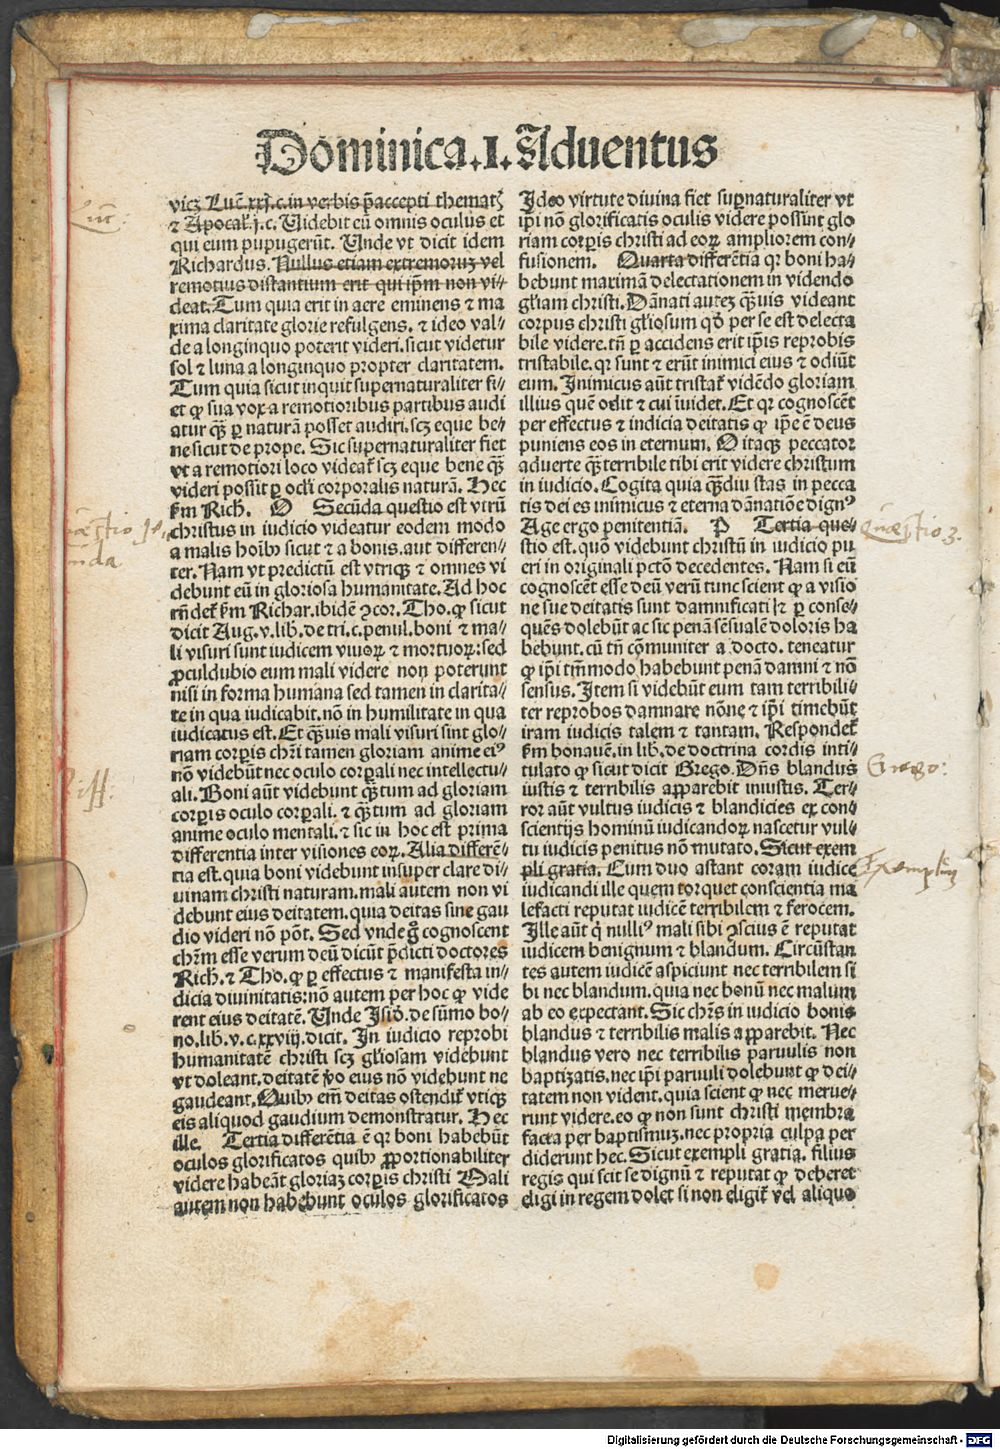 Dominica.I.Aduentus
vicꝫ Luc̄.xxj.c.in verbis p̄accepti thematꝭ
⁊ Apocal̓.j.c. Uidebit eū omnis oculus et
qui eum pupugerūt. Unde vt dicit idem
Richardus. Nullus etiam extremoruꝫ vel
remotius distantium erit qui ip̄m non vi⸗
deat. Tum quia erit in aere eminens ⁊ ma
xima claritate glorie refulgens. ⁊ ideo val⸗
de a longinquo poterit videri. sicut videtur
sol ⁊ luna a longinquo propter claritatem.
Tum quia sicut inquit supernaturaliter fi⸗
et ꝙ sua vox a remotioribus partibus audi
atur qꝫ̄ ꝑ naturā posset audiri. scꝫ eque be⸗
ne sicut de prope. Sic supernaturaliter fiet
vt a remotiori loco videat̓ scꝫ eque bene qꝫ̄
videri possūt ꝑ ocl̓i corporalis naturā. Hec
s̓m Rich. O Secūda questio est vtrū
christus in iudicio videatur eodem modo
a malis hoīb⁹ sicut ⁊ a bonis. aut differen⸗
ter. Nam vt predictū est vtriqꝫ ⁊ omnes vi
debunt eū in gloriosa humanitate. Ad hoc
rn̄det̓ s̓m Richar. ibidē ꝯcor. Tho. ꝙ sicut
dicit Aug. v. lib. de tri. c. penul. boni ⁊ ma⸗
li visuri sunt iudicem viuoꝝ ⁊ mortuoꝝ: sed
ꝓculdubio eum mali videre non poterunt
nisi in forma humana sed tamen in clarita⸗
te in qua iudicabit. nō in humilitate in qua
iudicatus est. Et qꝫ̄uis mali visuri sint glo⸗
riam corꝑis chr̄i tamen gloriam anime ei⁹
nō videbūt nec oculo corꝑali nec intellectu⸗
ali. Boni aūt videbunt qꝫ̄tum ad gloriam
corꝑis oculo corꝑali. ⁊ qꝫ̄tum ad gloriam
anime oculo mentali. ⁊ sic in hoc est prima
differentia inter visiones eoꝝ. Alia differē⸗
tia est. quia boni videbunt insuper clare di⸗
uinam christi naturam. mali autem non vi
debunt eius deitatem. quia deitas sine gau
dio videri nō pōt. Sed vnde g̊ cognoscent
chr̄m esse verum deū dicūt p̄dicti doctores
Rich. ⁊ Tho. ꝙ ꝑ effectus ⁊ manifesta in⸗
dicia diuinitatis: nō autem per hoc ꝙ vide
rent eius deitatē. Unde Isid̓. de sūmo bo⸗
no. lib. v. c. xxviij. dicit. In iudicio reprobi
humanitatē christi scꝫ gl̓iosam videbunt
vt doleant. deitatē v̓o eius nō videbunt ne
gaudeant. Quib⁹ em̄ deitas ostendit̓ vtiqꝫ
eis aliquod gaudium demonstratur. Hec
ille. Tertia differētia ē qr boni habebūt
oculos glorificatos quib⁹ ꝓportionabiliter
videre habeāt gloriaꝫ corꝑis christi Mali
autem non habebunt oculos glorificatos
Ideo virtute diuina fiet suꝑnaturaliter vt
ip̄i nō glorificatis oculis videre possint glo
riam corꝑis christi ad eoꝝ ampliorem con⸗
fusionem. Quarta differētia qr boni ha⸗
bebunt maximā delectationem in videndo
gl̓iam christi. Dānati auteꝫ qꝫ̄uis videant
corpus christi gl̓iosum qd̓ per se est delecta
bile videre. tn̄ ꝑ accidens erit ip̄is reprobis
tristabile. qr sunt ⁊ erūt inimici eius ⁊ odiūt
eum. Inimicus aūt tristat̓ vidēdo gloriam
illius quē odit ⁊ cui īuidet. Et qr cognoscēt
per effectus ⁊ indicia deitatis ꝙ ip̄e ē deus
puniens eos in eternum. O itaqꝫ peccator
aduerte qꝫ̄ terribile tibi erit videre christum
in iudicio. Cogita quia qꝫ̄diu stas in pecca
tis dei es inimicus ⁊ eterna dānatiōe dign⁹
Age ergo penitentiā. P Tertia que⸗
stio est. quō videbunt christū in iudicio pu
eri in originali pctō decedentes. Nam si eū
cognoscēt esse deū verū tunc scient ꝙ a visio
ne sue deitatis sunt damnificati ⁊ ꝑ conse⸗
quēs dolebūt ac sic penā sēsualē doloris ha
bebunt. cū tn̄ cōmuniter a docto. teneatur
ꝙ ip̄i tm̄modo habebunt penā damni ⁊ nō
sensus. Item si videbūt eum tam terribili⸗
ter reprobos damnare nōne ⁊ ip̄i timebūt
iram iudicis talem ⁊ tantam. Respondet̓
s̓m bonauē. in lib. de doctrina cordis inti⸗
tulato ꝙ sicut dicit Grego. Dn̄s blandus
iustis ⁊ terribilis apparebit iniustis. Ter⸗
ror aūt vultus iudicis ⁊ blandicies ex con⸗
scientijs hominū iudicandoꝝ nascetur vul⸗
tu iudicis penitus nō mutato. Sicut exem
pli gratia. Cum duo astant coram iudice
iudicandi ille quem torquet conscientia ma
lefacti reputat iudicē terribilem ⁊ ferocem.
Ille aūt q̇ nulli⁹ mali sibi ꝯscius ē reputat
iudicem benignum ⁊ blandum. Circūstan
tes autem iudicē aspiciunt nec terribilem si
bi nec blandum. quia nec bonū nec malum
ab eo expectant. Sic chr̄s in iudicio bonis
blandus ⁊ terribilis malis apparebit. Nec
blandus vero nec terribilis paruulis non
baptizatis. nec ip̄i paruuli dolebunt ꝙ dei⸗
tatem non vident. quia scient ꝙ nec merue⸗
runt videre. eo ꝙ non sunt christi membra
facta per baptismuꝫ. nec propria culpa per
diderunt hec. Sicut exempli gratia. filius
regis qui scit se dignū ⁊ reputat ꝙ deberet
eligi in regem dolet si non eligit̓ vel aliquo
Luc:
Quæstio 3.
Grego:
Exemplum
Digitalisierung gefördert durch die Deutsche Forschungsgemeinschaft - DFG